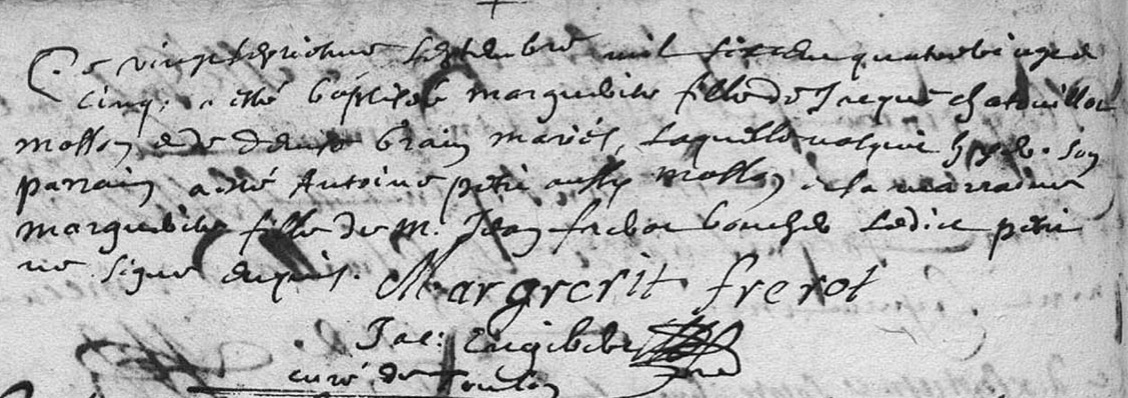 Ce vingtseptiesme septembre mil six cen quatrevingt et
cinq. a esté baptisée marguerite fille de Jacque chatouillot
masson et de denise brain mariés, laquelle nasquit hyer. son
parrain a esté Antoine petit aussy masson et la marraine
marguerite fille de m.^r Jean frerot boucher ledict petit
ne signe enquis. Margrerit frerot
Jac:
curé de Toulon